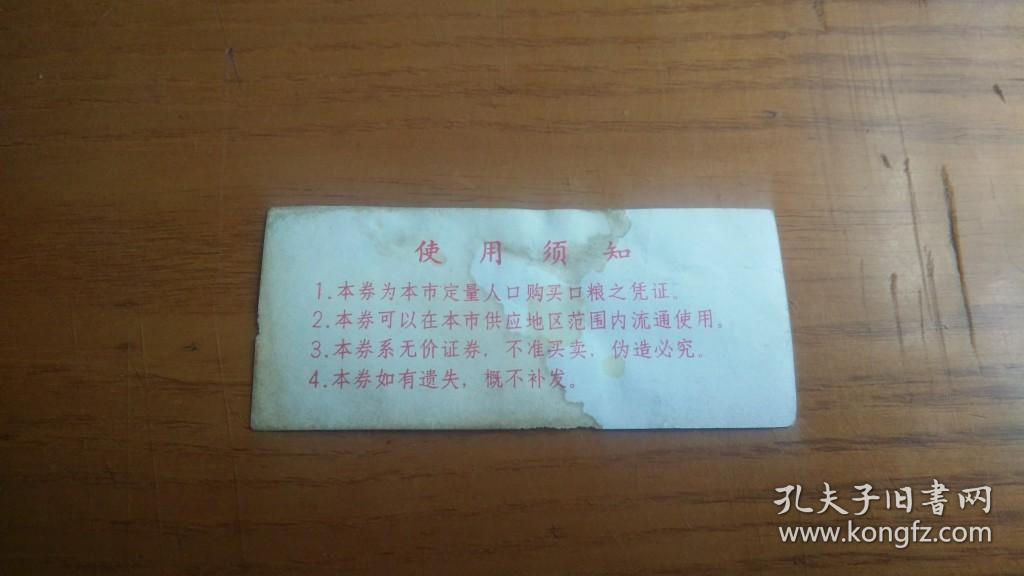 使用须知
1.本券为本市定量人口购买口粮之凭证。
2.本券可以在本市供应地区范围内流通使用。
3.本券系无价证券，不准买卖，伪造必究。
4.本券如有遗失，概不补发。
孔夫子旧书网
www.kongfz.com